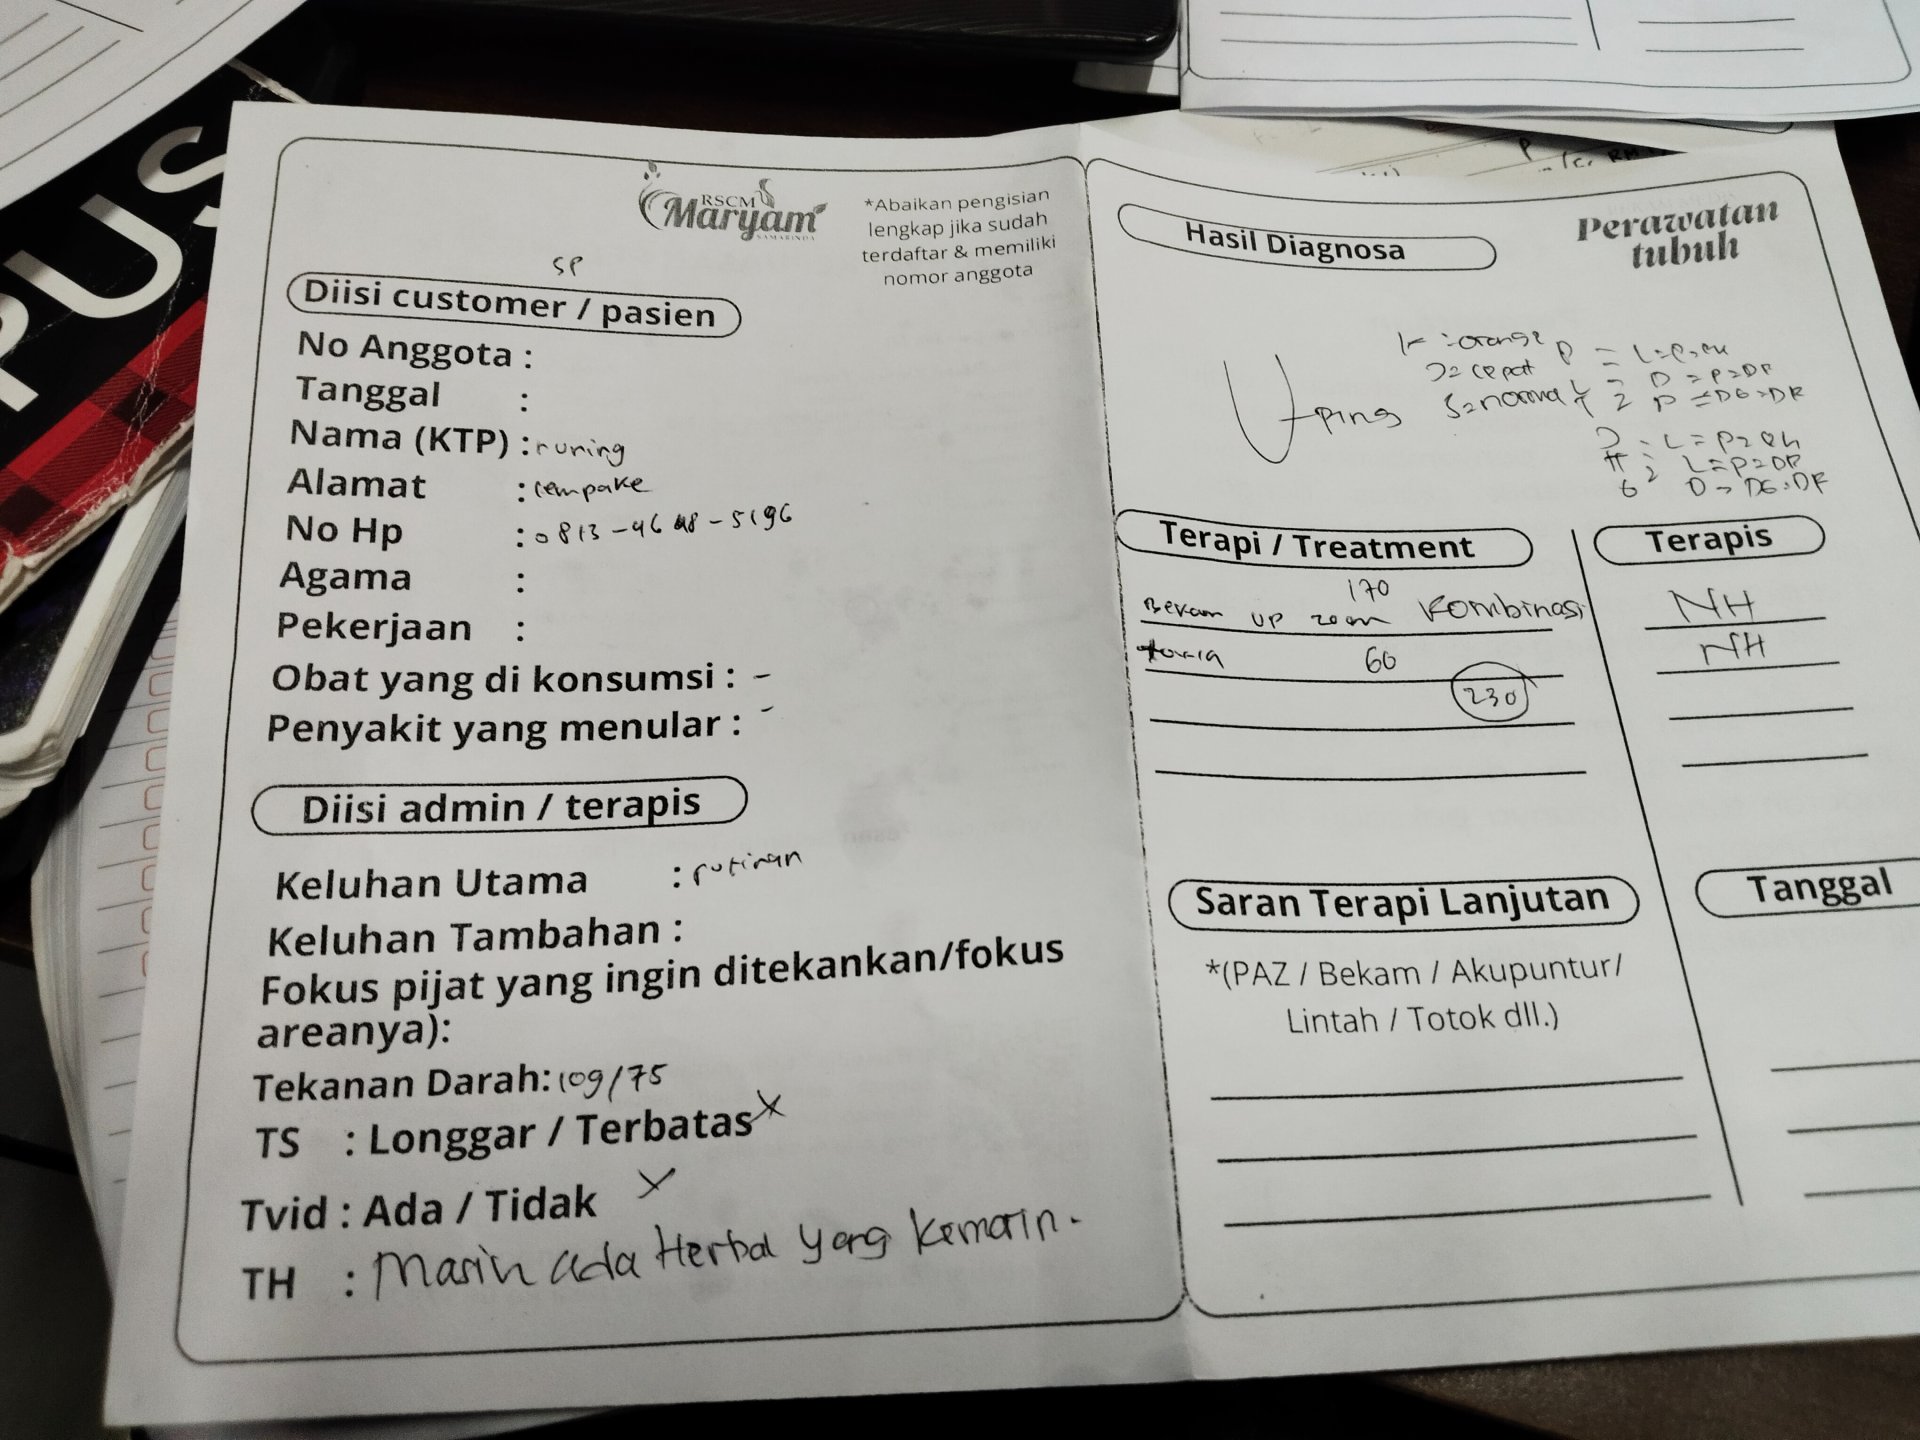 PUS
RSCM
Maryam
SAMARINDA
*Abaikan pengisian
lengkap jika sudah
terdaftar & memiliki
nomor anggota
SP
Diisi customer / pasien
No Anggota :
Tanggal :
Nama (KTP) : runing
Alamat : lempake
No Hp : 0813-4648-5196
Agama :
Pekerjaan :
Obat yang di konsumsi : -
Penyakit yang menular : -
Diisi admin / terapis
Keluhan Utama : rutinan
Keluhan Tambahan :
Fokus pijat yang ingin ditekankan/fokus
areanya):
Tekanan Darah: 109/75
TS : Longgar / Terbatas X
Tvid : Ada / Tidak X
TH : Masih ada Herbal yang kemarin.
Perawatan
tubuh
Hasil Diagnosa
orange
cepat
S=normal
ping
Terapi / Treatment
170
Bekam UP Kombinasi
60
230
Terapis
NH
NH
Saran Terapi Lanjutan
*(PAZ / Bekam / Akupuntur/
Lintah / Totok dll.)
Tanggal